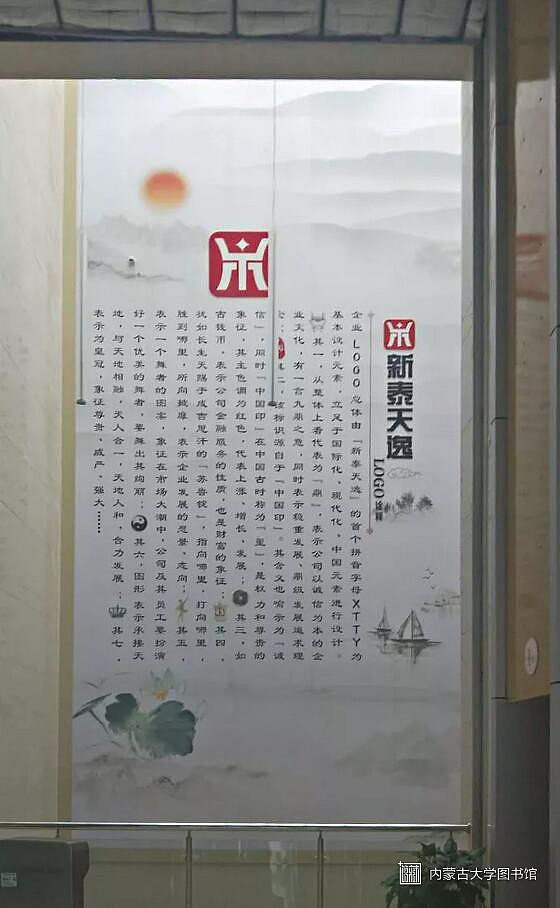 新泰天逸
LOGO诠释
企业LOGO总体由『新泰天逸』的首个拼音字母XTTY为
基本设计元素，立足于国际化、现代化、中国元素进行设计。
其一，从整体上看代表为『鼎』，表示公司以诚信为本的企
业文化，有一言九鼎之意，同时表示稳重发展、鼎级发展追求理
其二，该标识源自于『中国印』。其含义也喻示为『诚
信』，同时『中国印』在中国古时称为『玺』，是权力和尊贵的
象征，其主色调为红色，代表上涨、增长、发展；其三，如
古钱币，表示公司金融服务的性质，也是财富的象征；其四，
犹如长生天赐于成吉思汗的『苏鲁锭』，指向哪里，打向哪里，
胜到哪里，所向披靡，表示企业发展的愿景、志向；其五，
表示一个舞者的图案，象征在市场大潮中，公司及其员工要扮演
好一个优美的舞者，要舞出其绚丽；其六，图形表示承接天
地，与天地相融，天人合一，天地人和，合力发展；其七，
表示为皇冠，象征尊贵、威严、强大……
内蒙古大学图书馆